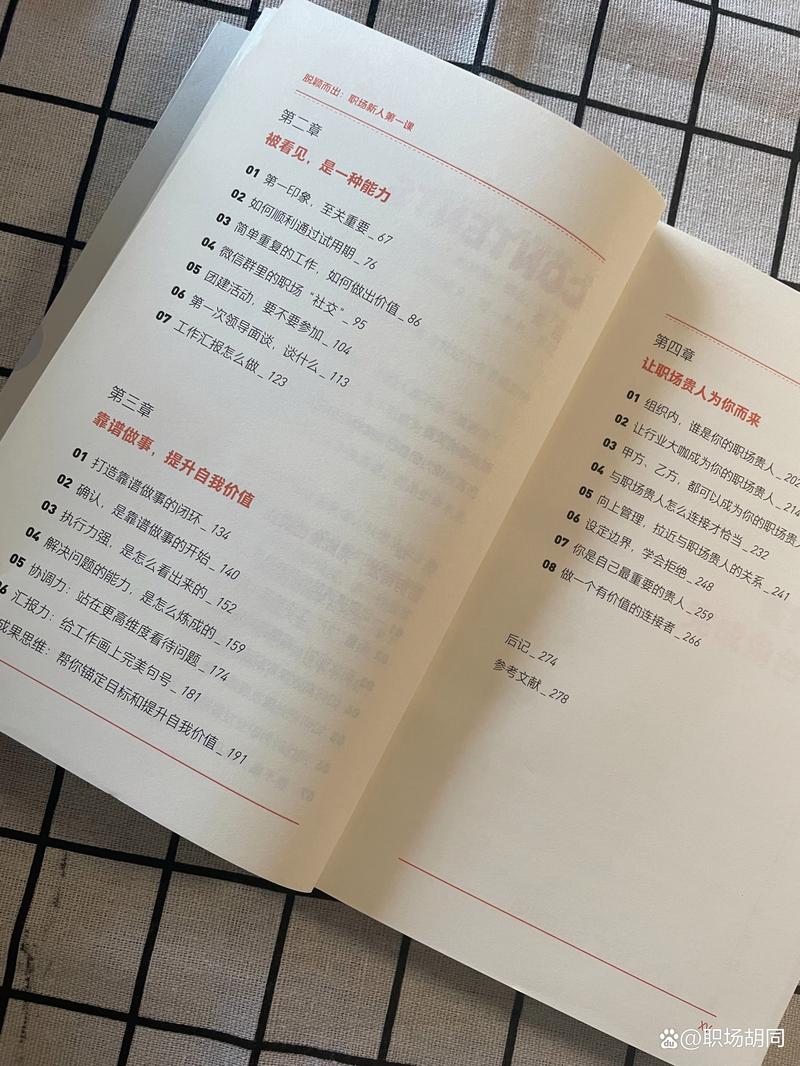 脱颖而出：职场新人第一课
第二章
被看见，是一种能力
01 第一印象，至关重要_67
02 如何顺利通过试用期_76
03 简单重复的工作，如何做出价值_86
04 微信群里的职场“社交”_95
05 团建活动，要不要参加_104
06 第一次领导面谈，谈什么_113
07 工作汇报怎么做_123
第三章
靠谱做事，提升自我价值
01 打造靠谱做事的闭环_134
02 确认，是靠谱做事的开始_140
03 执行力强，是怎么看出来的_152
04 解决问题的能力，是怎么炼成的_159
05 协调力：站在更高维度看待问题_174
06 汇报力：给工作画上完美句号_181
成果思维：帮你锚定目标和提升自我价值_191
第四章
让职场贵人为你而来
01 组织内，谁是你的职场贵人_202
02 让行业大咖成为你的职场贵人_214
03 甲方、乙方，都可以成为你的职场贵人
04 与职场贵人怎么连接才恰当_232
05 向上管理，拉近与职场贵人的关系_241
06 设定边界，学会拒绝_248
07 你是自己最重要的贵人_259
08 做一个有价值的连接者_266
后记_274
参考文献_278
@职场胡同